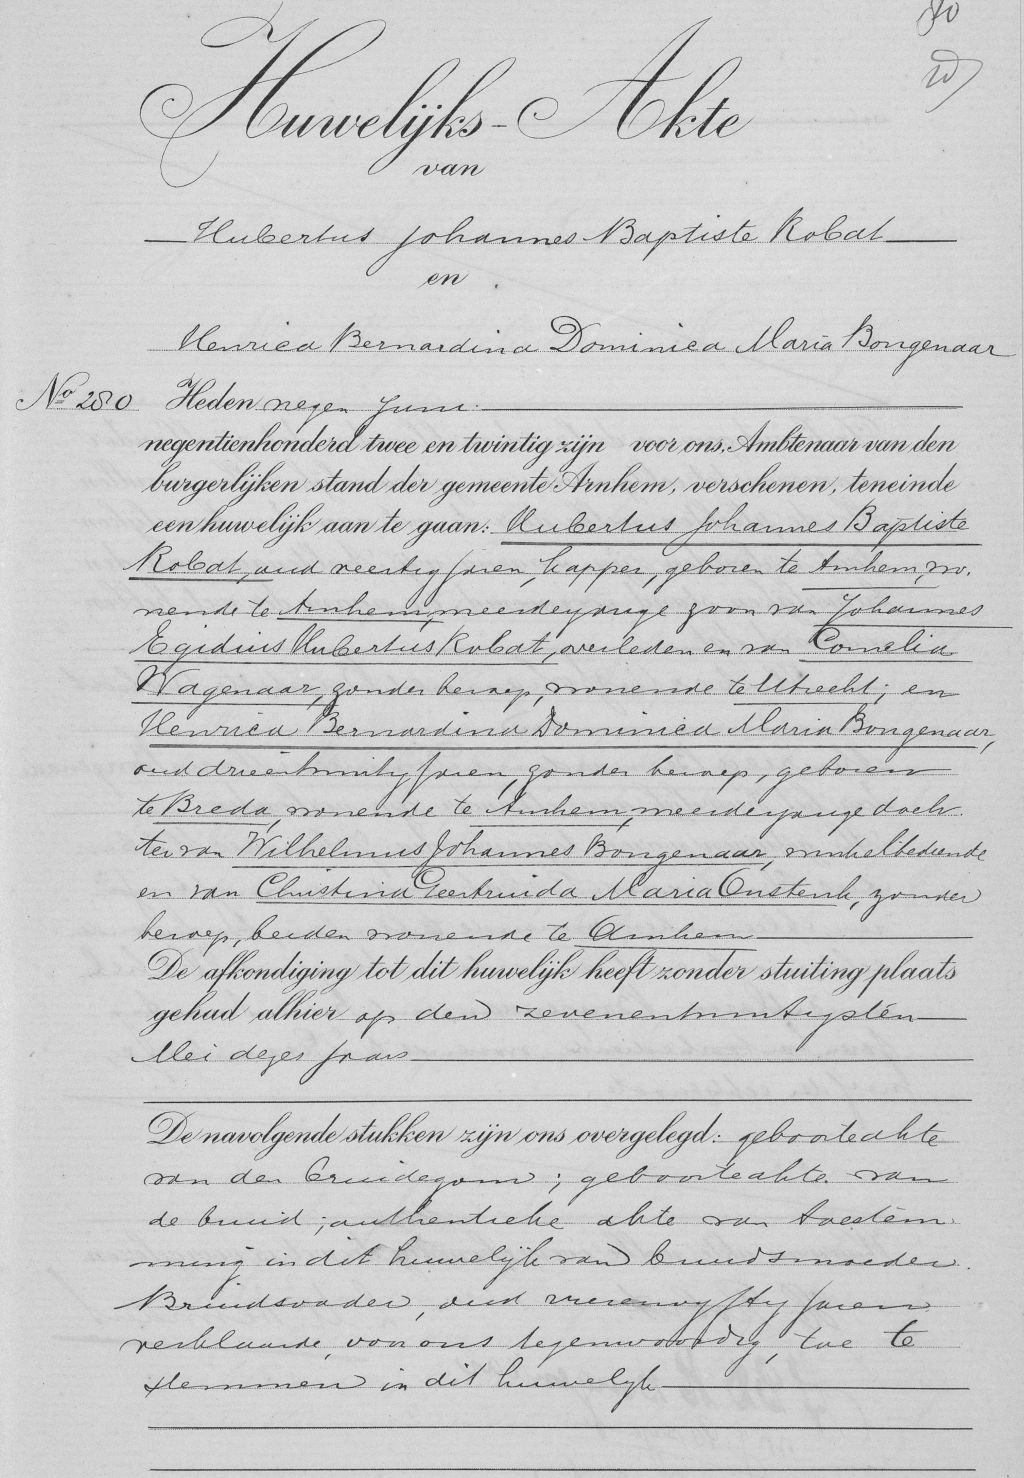 80
Huwelijks-Akte
van
Hubertus Johannes Baptiste Robat
en
Henrica Bernardina Dominica Maria Bongenaar
No 280 Heden negen Juni
negentienhonderd twee en twintig zijn voor ons, Ambtenaar van den
burgerlijken stand der gemeente Arnhem, verschenen, teneinde
een huwelijk aan te gaan: Hubertus Johannes Baptiste
Robat, oud veertig jaren, kapper, geboren te Arnhem, wo-
nende te Arnhem, meerderjarige zoon van Johannes
Egidius Hubertus Robat, overleden en van Cornelia
Wagenaar, zonder beroep, wonende te Utrecht; en
Henrica Bernardina Dominica Maria Bongenaar,
oud drieëntwintig jaren, zonder beroep, geboren
te Breda, wonende te Arnhem, meerderjarige doch-
ter van Wilhelmus Johannes Bongenaar, winkelbediende
en van Christina Geertruida Maria Onstenk, zonder
beroep, beiden wonende te Arnhem
De afkondiging tot dit huwelijk heeft zonder stuiting plaats
gehad alhier op den zevenentwintigsten
Mei dezes jaars
De navolgende stukken zijn ons overgelegd: geboorteakte
van den bruidegom; geboorteakte van
de bruid; authentieke akte van toestem-
ming in dit huwelijk van bruidsmoeder.
Bruidsvader, oud vierenvijftig jaren
verklaarde, voor ons tegenwoordig, toe te
stemmen in dit huwelijk